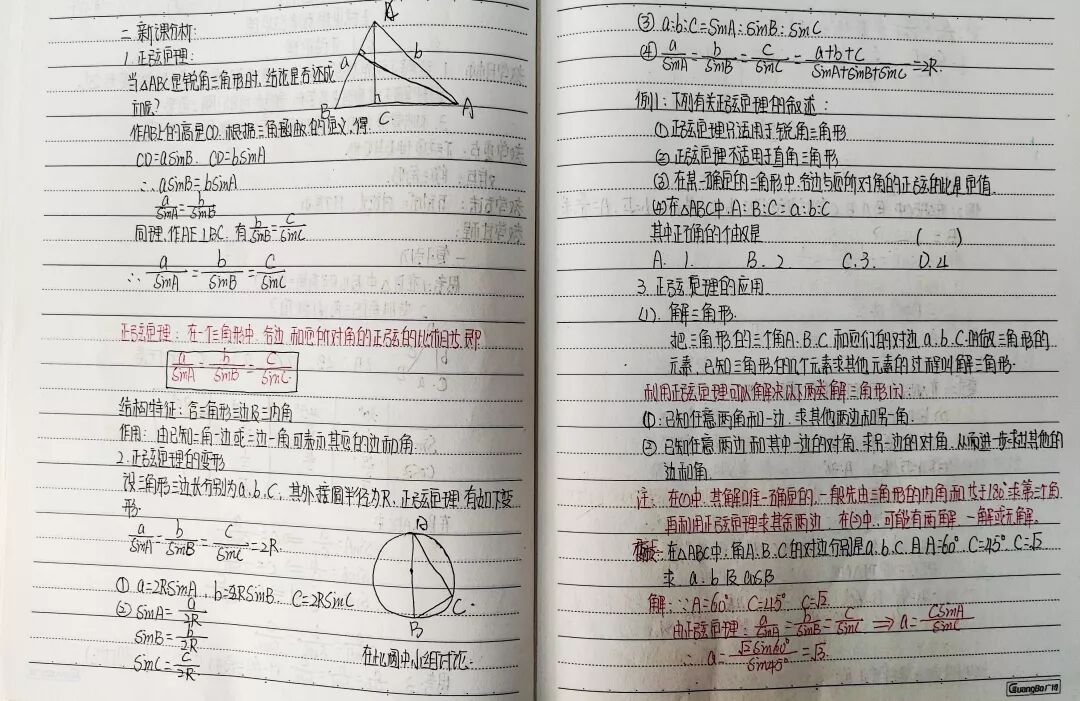 二 新课分析:
1. 正弦定理:
当△ABC是锐角三角形时,结论是否还成
立呢?
作AB上的高是CD.根据三角函数的定义,得
CD=asinB. CD=bsinA
∴asinB=bsinA
a/sinA=b/sinB
同理,作AE⊥BC.有b/sinB=c/sinC
∴ a/sinA=b/sinB=c/sinC
正弦定理: 在一个三角形中.各边和它所对角的正弦的比相等,即
a/sinA=b/sinB=c/sinC.
结构特征: 含三角形三边及三内角
作用: 由已知二角一边或二边一角可表示其它的边和角.
2. 正弦定理的变形
设三角形三边长分别为a.b.c, 其外接圆半径为R, 正弦定理有如下变
形.
a/sinA=b/sinB=c/sinC=2R.
① a=2RsinA, b=2RsinB. c=2RsinC
② sinA=a/2R
sinB=b/2R
sinC=c/2R
在此圆中,小组讨论.
A
a
b
B
C
A
A
C
B
③ a:b:c=sinA:sinB:sinC
④ a/sinA=b/sinB=c/sinC=a+b+c/sinA+sinB+sinC=2R.
例1: 下列有关正弦定理的叙述:
①正弦定理只适用于锐角三角形
②正弦定理不适用于直角三角形
③在某一确定的三角形中.各边与它所对角的正弦的比是定值.
④在△ABC中.A:B:C=a:b:c
其中正确的个数是 ( )
A. 1. B. 2. C. 3. D. 4
3. 正弦定理的应用.
(1). 解三角形.
把三角形的三个角A.B.C和它们的对边a.b.c.叫做三角形的
元素,已知三角形的几个元素求其他元素的过程叫解三角形.
利用正弦定理可以解决以下两类解三角形问:
①:已知任意两角和一边.求其他两边和另一角.
② 已知任意两边和其中一边的对角.求另一边的对角.从而进一步求出其他的
边和角.
注: 在①中.其解唯一确定的.一般先由三角形的内角和等于180°求第三个角.
再利用正弦定理求其余两边.在②中.可能有两解.一解或无解.
在△ABC中.角A.B.C的对边分别是a.b.c.且A=60°.C=45°.c=√2
求 a.b及cosB
解: ∵A=60° C=45° c=√2
由正弦定理: a/sinA=b/sinB=c/sinC ⇒ a=csinA/sinC
∴ a=√2sin60°/sin45°=√3.
GuangBo广博